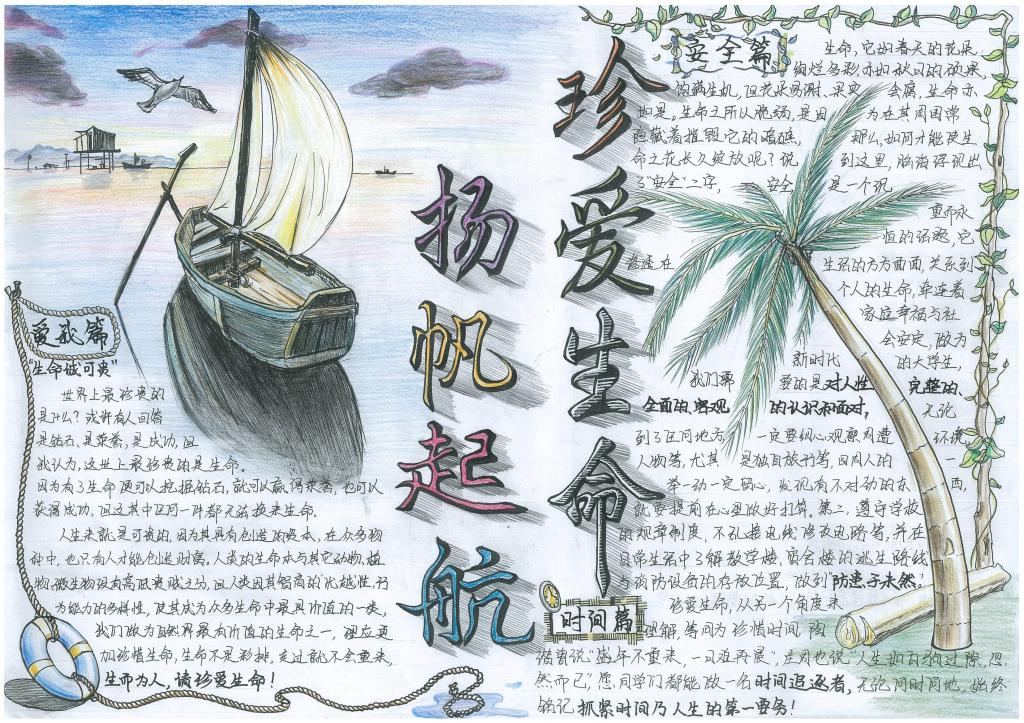 珍爱生命
扬帆起航
爱我篇
"生命诚可贵"
世界上最珍贵的
是什么?或许有人回答
是钻石、是荣誉、是成功,但
我认为,这世上最珍贵的是生命。
因为有了生命便可以挖掘钻石,就可以赢得荣誉,也可以
获得成功,但这其中任何一件都无法换来生命。
人生来就是可贵的,因为其具有创造的资本,在众多物
种中,也只有人才能创造财富。人类的生命本与其它动物、植
物、微生物没有高低贵贱之分,但人类因其智商的优越性,行
为能力的多样性,使其成为众多生命中最具价值的一类,
我们做为自然界最有价值的生命之一,理应更
加珍惜生命,生命不是彩排,走过就不会重来,
生而为人,请珍爱生命!
安全篇
生命,它如春天的花朵
绚烂多彩,亦如秋日的硕果
饱满生机,但花朵易谢、果实会腐,生命亦
如是。生命之所以脆弱,是因为在其周围常
隐藏着摧毁它的暗礁,那么,如何才能使生
命之花长久绽放呢?说到这里,脑海浮现出
了"安全"二字,安全是一个说
重而永
恒的话题,它
渗透在生活的方方面面,关系到
个人的生命,牵连着
家庭幸福与社
会安定,做为
新时代的大学生,
我们要要的是对人性完整的、
全面的、客观的认识和面对,无论
到了任何地方,一定要细心观察周遭环境、
人物等,尤其是独自旅行等,因周人的一
举一动一定留心,发现有不对劲的东西,
就要提前在心里做好打算。第二,遵守学校
的规章制度,不乱接电线、修改电路等,并在
日常生活中了解教学楼、宿舍楼的逃生路线
与消防设备的存放位置,做到"防患于未然"
时间篇
珍爱生命,从另一个角度来
理解,等同为珍惜时间,陶
渊明曾说"盛年不重来,一日难再晨",庄周也说"人生如白驹过隙,忽
然而已",愿同学们都能做一名时间追逐者,无论何时何地,始终
铭记抓紧时间乃人生的第一要务!